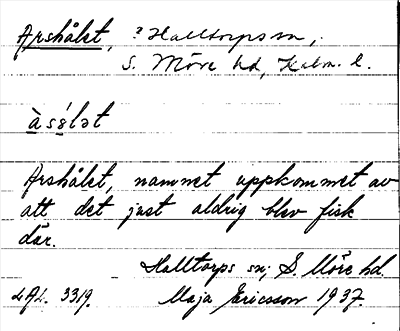 Arshålet, ? Halltorps sn,
S. Möre hd, Kalm. l.
àsó̀lət
Arshålet, namnet uppkommet av
att det just aldrig blev fisk
där.
Halltorps sn; S. Möre hd.
LAL. 3319. Maja Ericsson 1937.